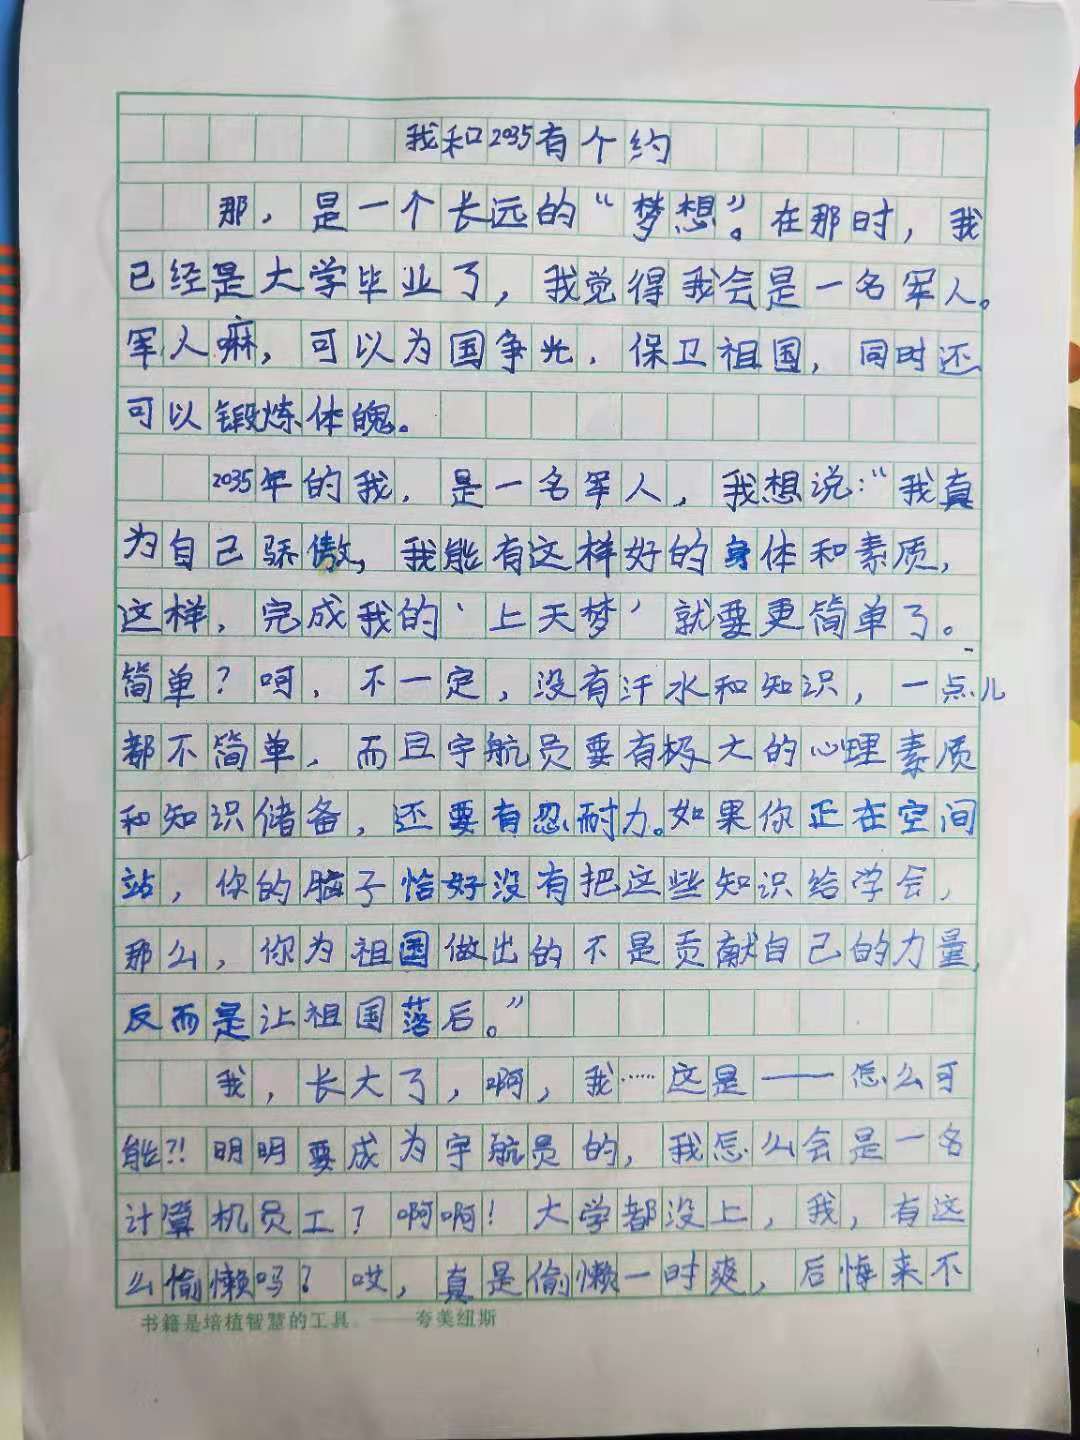 我和2035有个约
那，是一个长远的“梦想”。在那时，我
已经是大学毕业了，我觉得我会是一名军人。
军人嘛，可以为国争光，保卫祖国，同时还
可以锻炼体魄。
2035年的我，是一名军人，我想说：“我真
为自己骄傲，我能有这样好的身体和素质，
这样，完成我的‘上天梦’就要更简单了。
简单？呵，不一定，没有汗水和知识，一点儿
都不简单，而且宇航员要有极大的心理素质
和知识储备，还要有忍耐力。如果你正在空间
站，你的脑子恰好没有把这些知识给学会，
那么，你为祖国做出的不是贡献自己的力量，
反而是让祖国落后。”
我，长大了，啊，我……这是——怎么可
能？！明明要成为宇航员的，我怎么会是一名
计算机员工？啊啊！大学都没上，我，有这
么偷懒吗？哎，真是偷懒一时爽，后悔来不
书籍是培植智慧的工具。——夸美纽斯